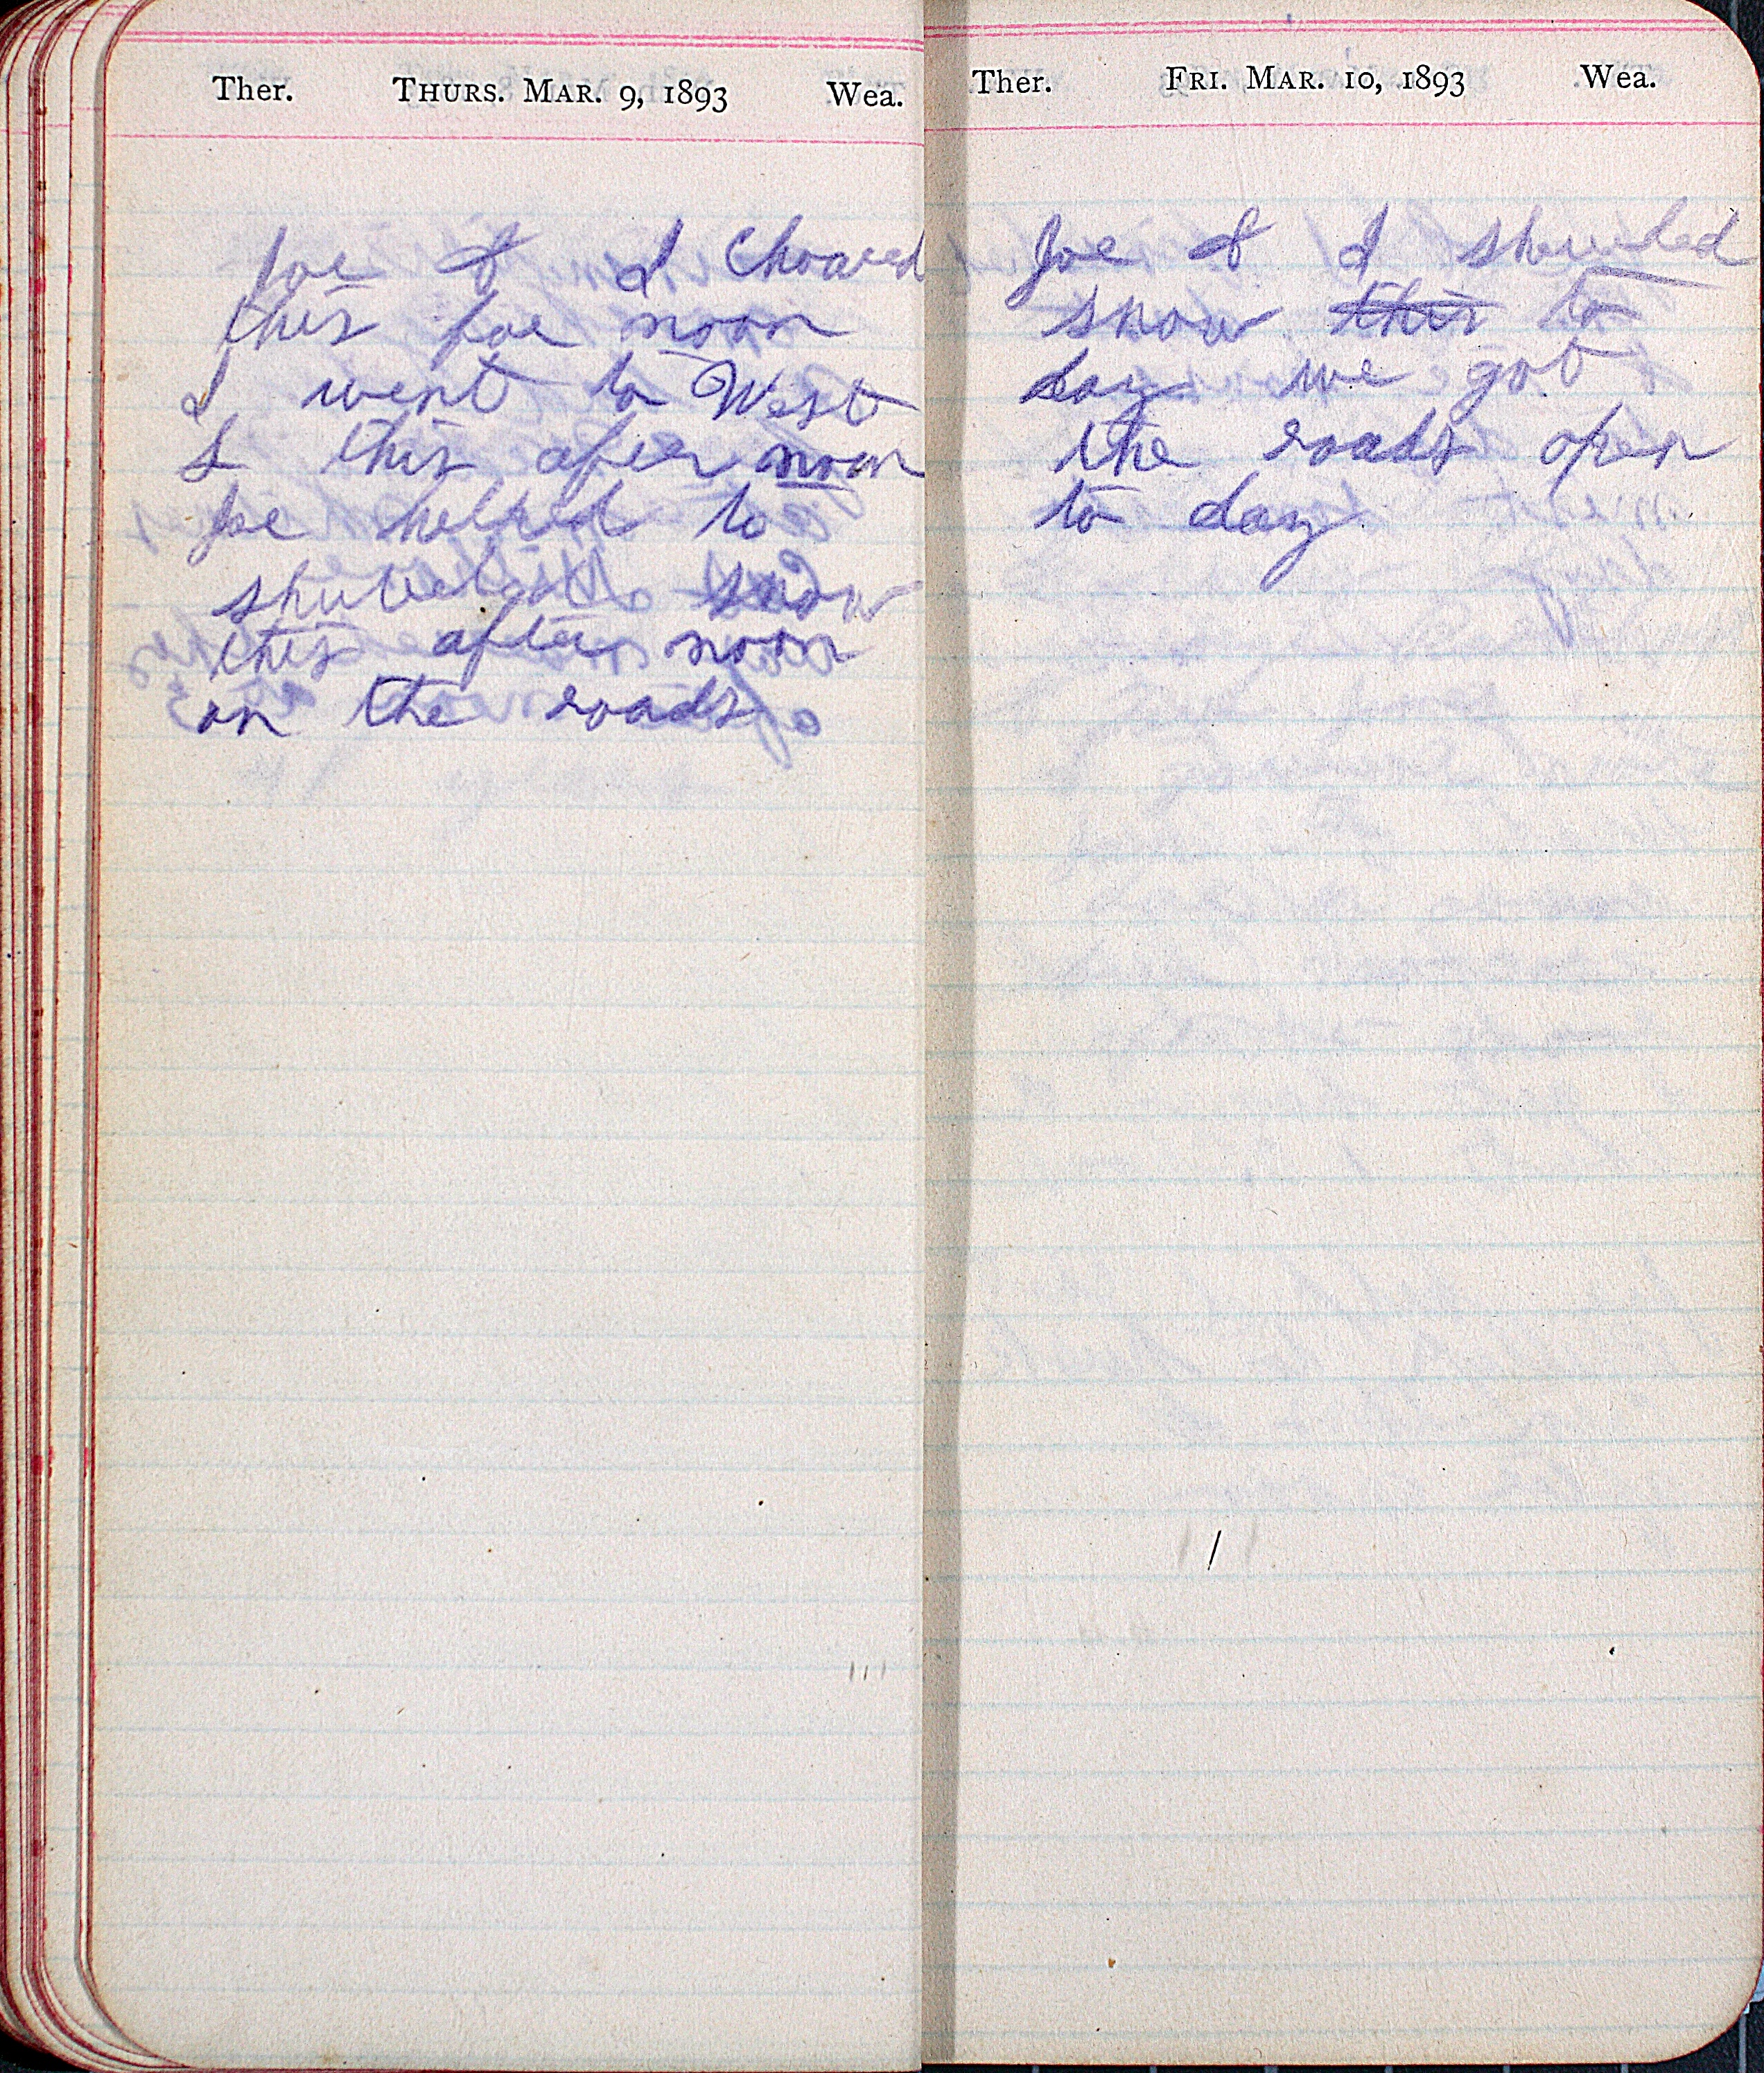 Ther. THURS. MAR. 9, 1893 Wea.
Joe & I Choared
this foe noon
I went to West
S this after noon
Joe helped to
shuveled snow
this after noon
on the roads
Ther. FRI. MAR. 10, 1893 Wea.
Joe & I shuveled
snow this to
day we got
the roads open
to day